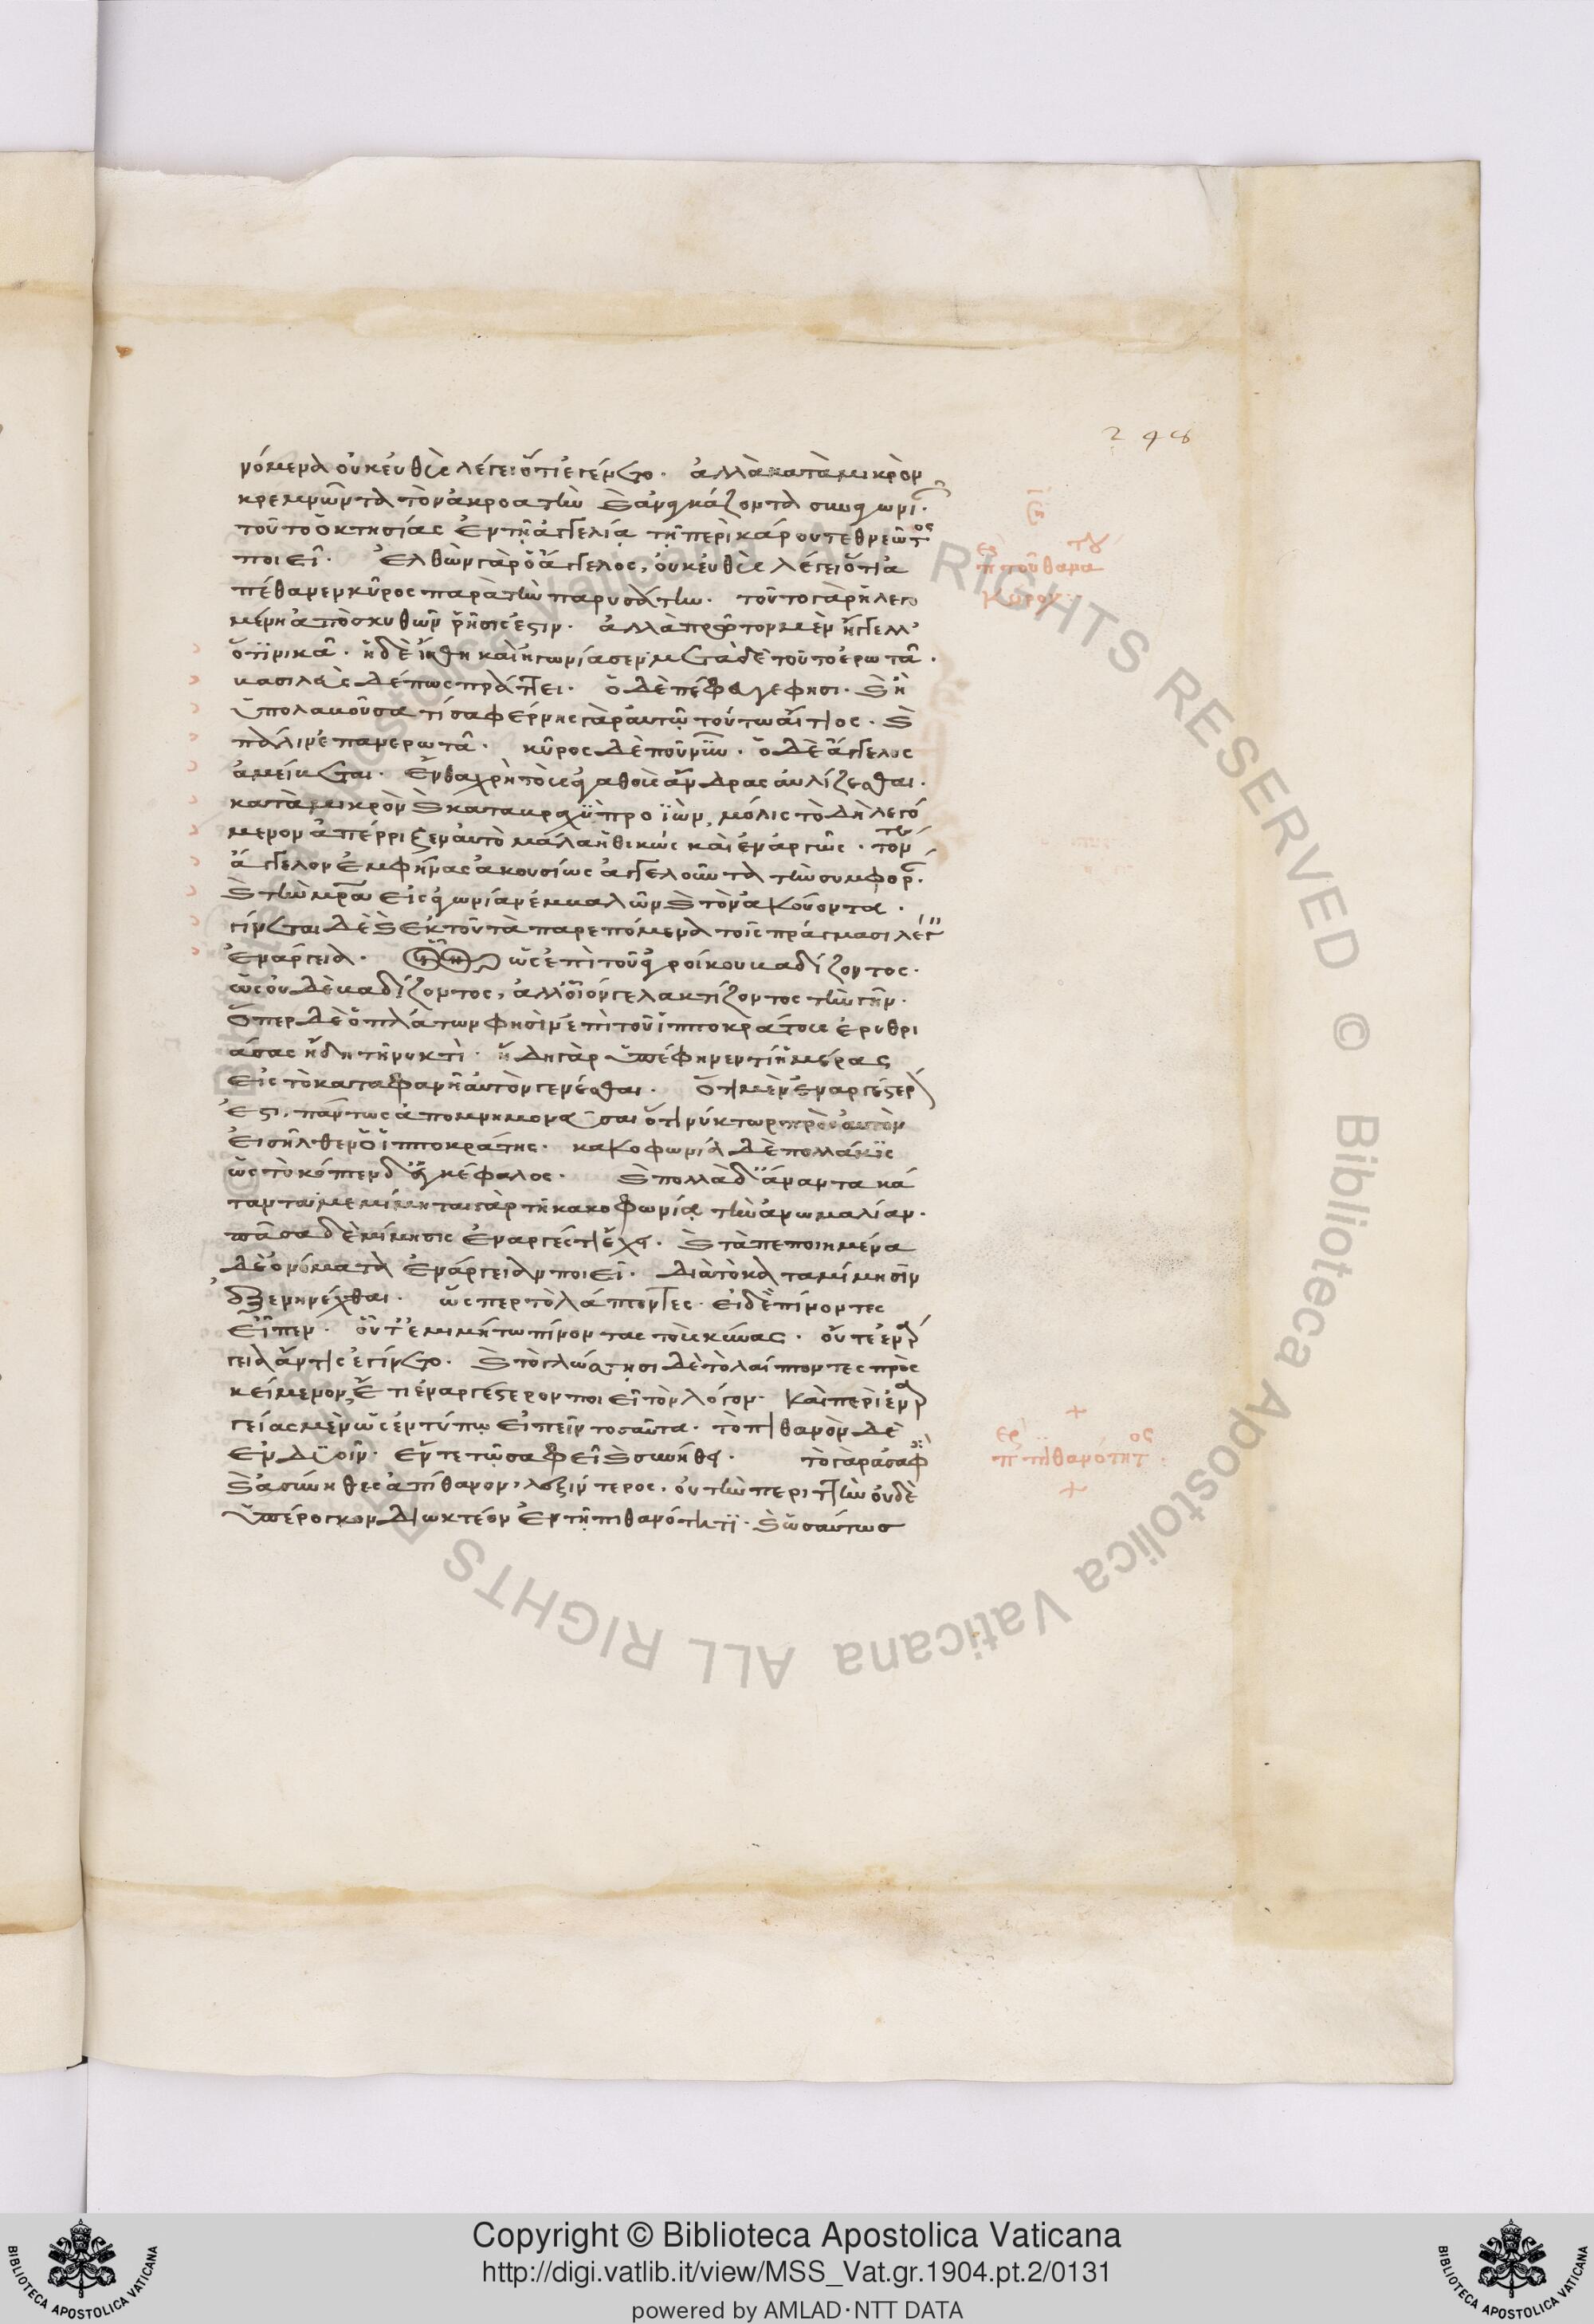 νόμενα οὐκ εὐθὺς λέγει ὅτι ἐγένετο· ἀλλὰ κατὰ μικρὸν
κρεμνῶντα τὸν ἀκροατὴν καὶ ἀναγκάζοντα συναγωνι·
τοῦτο ὁ κτησίας ἐν τῇ ἀγγελίᾳ τῇ περὶ κύρου τεθνεῶτος
ποιεῖ· ἐλθὼν γὰρ ὁ ἄγγελος, οὐκ εὐθὺς λέγει ὅτι ἀ
πέθανεν κῦρος παρὰ τὴν παρυσάτιν· τοῦτο γὰρ ἡ λεγο
μένη ἀπὸ σκυθῶν ῥῆσις ἐστιν· ἀλλὰ πρῶτον μὲν ἤγγειλ
ὅτι νικᾷ· ἡ δὲ ἥσθη καὶ ἠγωνίασεν· μετὰ δὲ τοῦτο ἐρωτᾷ·
βασιλεὺς δέ πως πράττει· ὁ δὲ πέφευγε φησι· καὶ ἣ
ὑπολαβοῦσα τισσαφέρνης γὰρ αὐτῷ τούτων αἴτιος· καὶ
πάλιν ἐπανερωτᾷ· κῦρος δὲ ποῦ νῦν· ὁ δὲ ἄγγελος
ἀμείβεται· ἔνθα χρὴ τοὺς ἀγαθοὺς ἄνδρας αὐλίζεσθαι·
κατὰ μικρὸν καὶ κατὰ βραχὺ προϊὼν, μόλις τὸ δὴ λεγό
μενον ἀπέρριξεν αὐτὸ μάλα ἠθικῶς καὶ ἐναργῶς· τόν τε
ἄγγελον ἐμφήνας ἀκουσίως ἀγγελοῦντα τὴν συμφορ·
καὶ τὴν μρ̅α εἰς ἀγωνίαν ἐμβαλὼν καὶ τὸν ἀκούοντα·
γίνεται δὲ καὶ ἐκ τοῦ τὰ παρεπόμενα τοῖς πράγμασι λέγ
ἐνάργεια· ὡς ἐπὶ τοῦ ἀγροίκου βαδίζοντος·
ὡς οὐ δὲ βαδίζοντος, ἀλλ' οἷόν γε λακτίζοντος τὴν γῆν·
ὅπερ δὲ ὁ πλάτων φησὶν ἐπὶ τοῦ ἱπποκράτους ἐρυθρι
άσας ἤδη τῇ νυκτὶ· ἤδη γὰρ ὑπέφηνεν τι ἡμέρας
εἰς τὸ καταφανῆ αὐτὸν γενέσθαι· ὅτι μὲν ἐναργέστερ
ἐστι, πάντως ἀπομνημονεῦσαι ὅτι νύκτωρ πρὸς αὐτὸν
εἰσῆλθεν ὁ ἱπποκράτης· κακοφωνία δὲ πολλάκις
ὡς τὸ κόπτ' ἐν δ' ἐγκέφαλος· καὶ πολλὰ δ' ἄναντα κά
ταντα· μεμίμηται γὰρ τῇ κακοφωνίᾳ τὴν ἀνωμαλίαν·
πᾶσα δὲ μίμησις ἐναργές τι ἔχει· καὶ τὰ πεποιημένα
δὲ ὀνόματα ἐνάργειαν ποιεῖ· διὰ τὸ κατὰ μίμησιν
ἐξενηνέχθαι· ὥσπερ τὸ λάπτοντες· εἰ δὲ πίνοντες
εἶπεν· οὔτ' ἐμιμεῖτο πίνοντας τοὺς κύνας· οὔτε ἐνάρ
γεια ἄν τις ἐγίνετο· καὶ τὸ γλώσσῃσι δὲ τὸ λάπτοντες πρὸς
κείμενον, ἔτι ἐναργέστερον ποιεῖ τὸν λόγον· καὶ περὶ ἐναρ
γείας μὲν ὡς ἐν τύπῳ εἰπεῖν τοσαῦτα· τὸ πιθανὸν δὲ
ἐν δυοῖν· ἔν τε τῷ σαφεῖ καὶ συνήθει· τὸ γὰρ ἀσαφὲς
καὶ ἀσύνηθες ἀπίθανον, λέξιν τε οὐ τὴν περιττὴν οὐδὲ
ὑπέρογκον διωκτέον ἐν τῇ πιθανότητι· καὶ ὡσαύτως
248
π τοῦ θανα του
κύρου·
περ πιθανότητος·